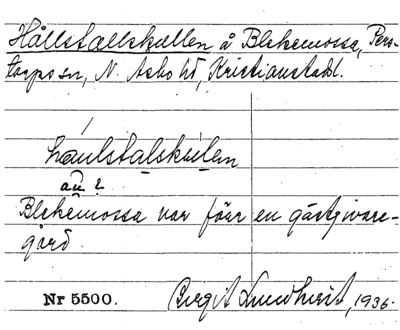 Hållstallskullen å Blekemossa, Pers-
torps sn, N. Asbo hd, Kristianstads l.
haulstalskulen
au 2
Blekemossa var förr en gästgivare-
gård.
Nr 5500. Birgit Lundqvist, 1936.